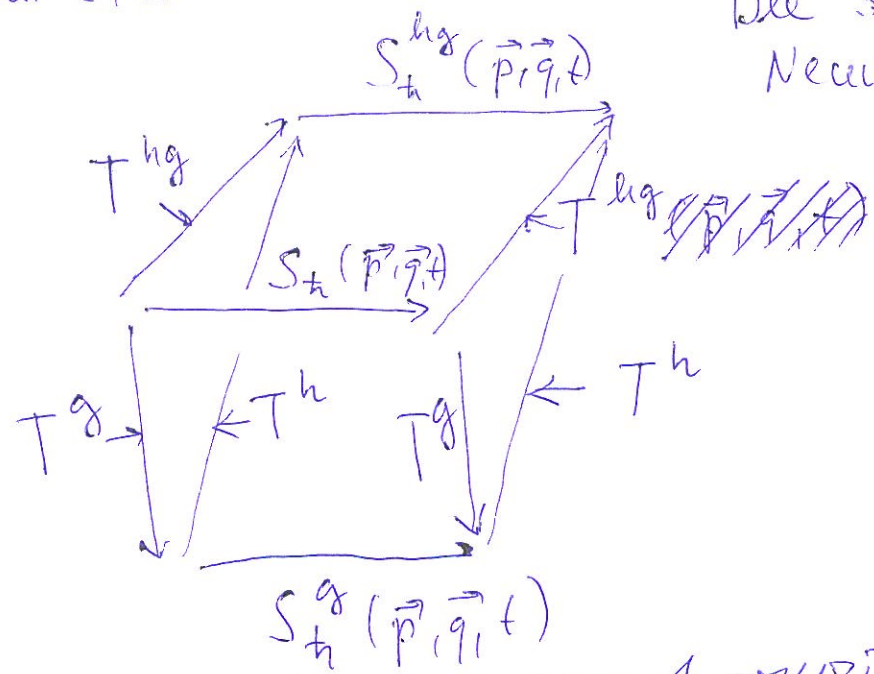 S_ħ^{hg}(p⃗, q⃗, t)
T^{hg}
T^{hg}
S_ħ(p⃗, q⃗, t)
T^g
T^h
T^g
T^h
S_ħ^g(p⃗, q⃗, t)